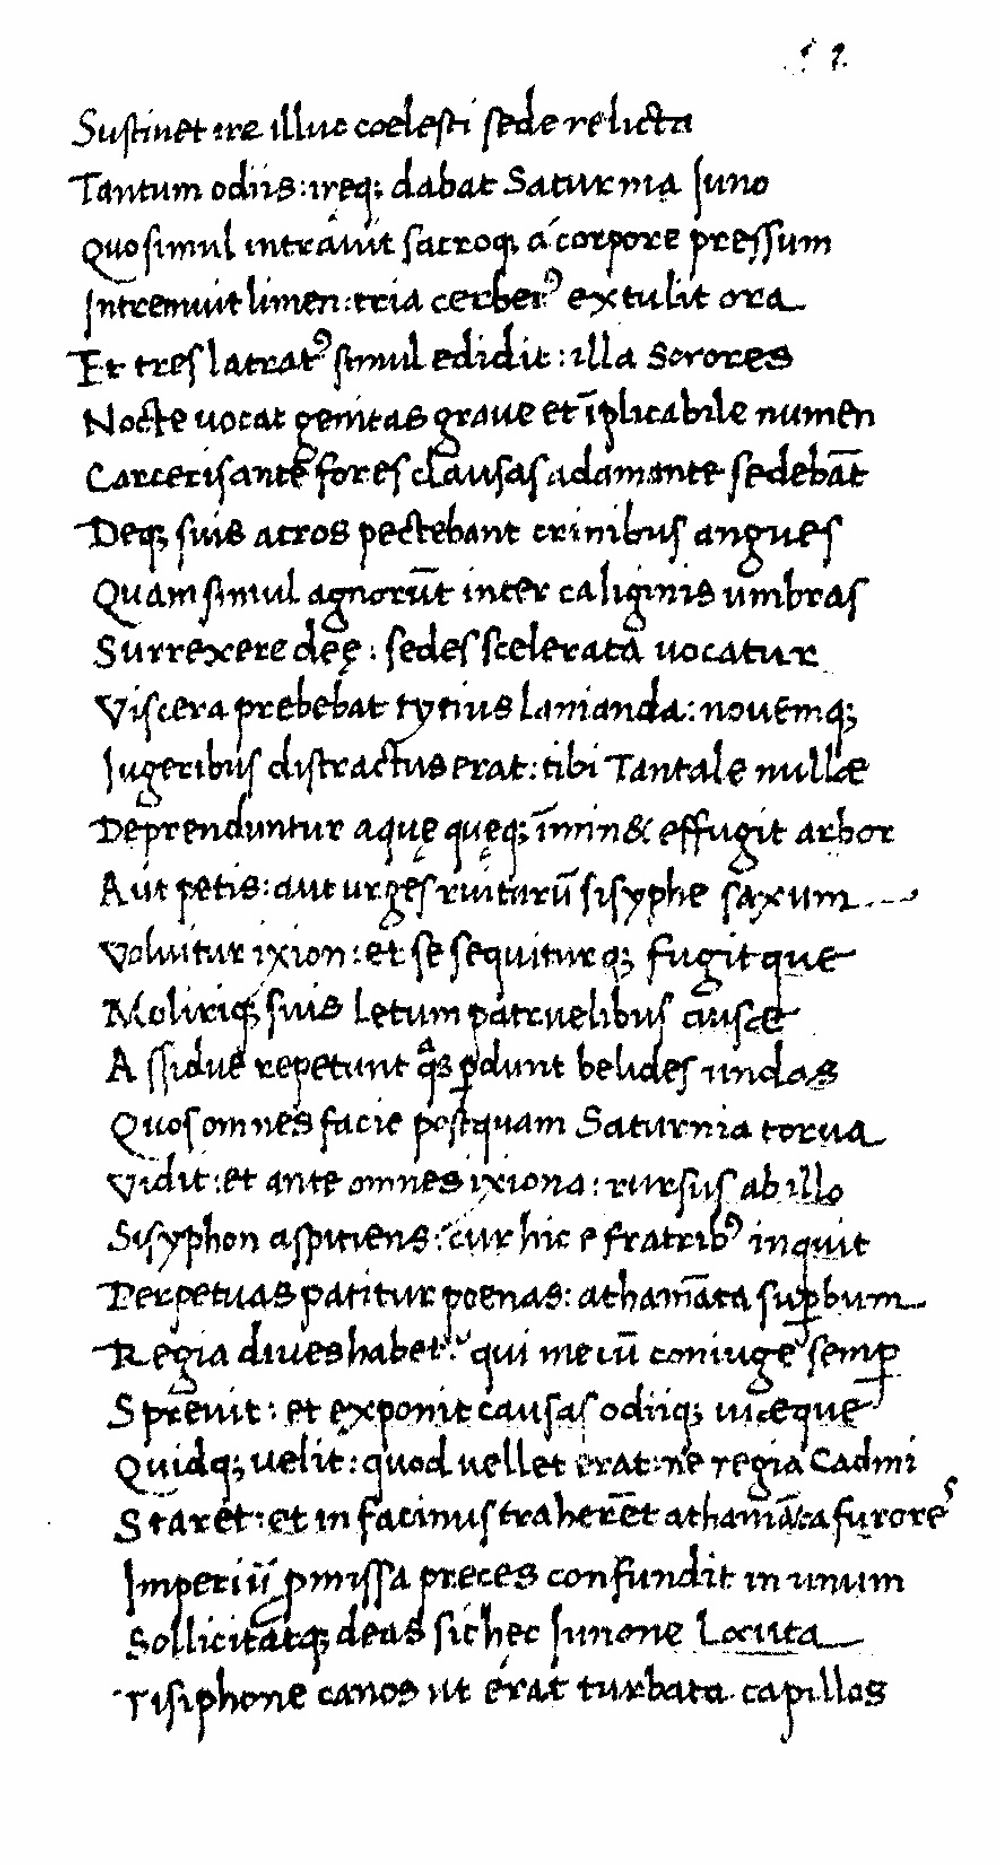 52
Sustinet ire illuc coelesti sede relicta
Tantum odiis: iręq; dabat Saturnia Iuno
Quo simul intravit sacroq; á corpore pressum
Intremuit limen: tria cerberꝰ extulit ora
Et tres latratꝰ simul edidit: illa Sorores
Nocte vocat genitas grave et īplicabile numen
Carceris ante fores clausas adamante sedebāt
Deq; suis atros pectebant crinibus angues
Quam simul agnorūt inter caliginis umbras
Surrexere deę: sedes scelerata vocatur
Viscera prebebat tytius lanianda: novemq;
Iugeribus distractus erat: tibi Tantale nullæ
Deprenduntur aquę quęq; īmin& effugit arbor
Aut petis: aut urges ruiturū sisyphe saxum
Volvitur ixion: et se sequiturq; fugitque
Moliriq; suis letum patruelibus ausæ
Assidue repetunt q̃s ꝑdunt belides undas
Quos omnes facie postquam Saturnia torva
Vidit: et ante omnes ixiona: rursus ab illo
Sisyphon aspitiens: cur hic e fratribꝰ inquit
Perpetuas patitur poenas: athamāta suꝑbum
Regia dives habet: qui me cū coniuge semꝑ
Sprevit: et exponit causas odiiq; viæque
Quidq; velit: quod vellet erat: ne regia Cadmi
Staret: et in facinus traherēt athamāta furores
Imperiū ꝓmissa preces confundit in unum
Sollicitatq; deas sic hec Iunone Locuta
Tisiphone canos ut erat turbata capillos